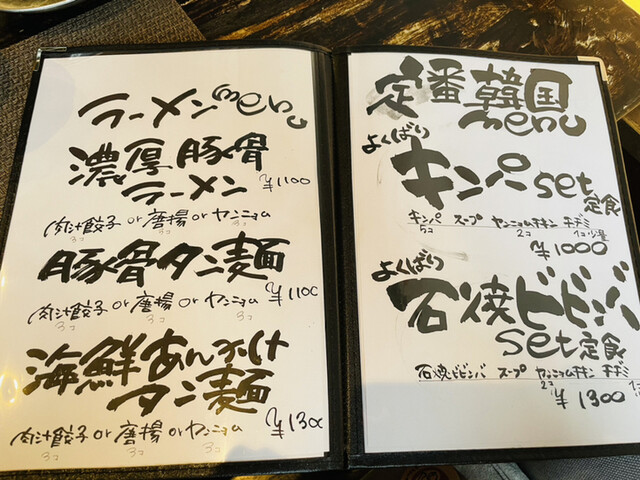 ラーメン menu
濃厚豚骨
ラーメン ¥1100
肉汁餃子 or 唐揚 or ヤンニョム
3コ 3コ 3コ
豚骨タン麺
¥1100
肉汁餃子 or 唐揚 or ヤンニョム
3コ 3コ 3コ
海鮮あんかけ
タン麺 ¥1300
肉汁餃子 or 唐揚 or ヤンニョム
3コ 3コ 3コ
定番韓国
menu
よくばり
キンパ set
定食
キンパ スープ ヤンニョムチキン チヂミ
5コ 2コ 1コ 少量
¥1000
よくばり
石焼ビビンバ
set 定食
石焼ビビンバ スープ ヤンニョムチキン チヂミ
2コ
¥1300